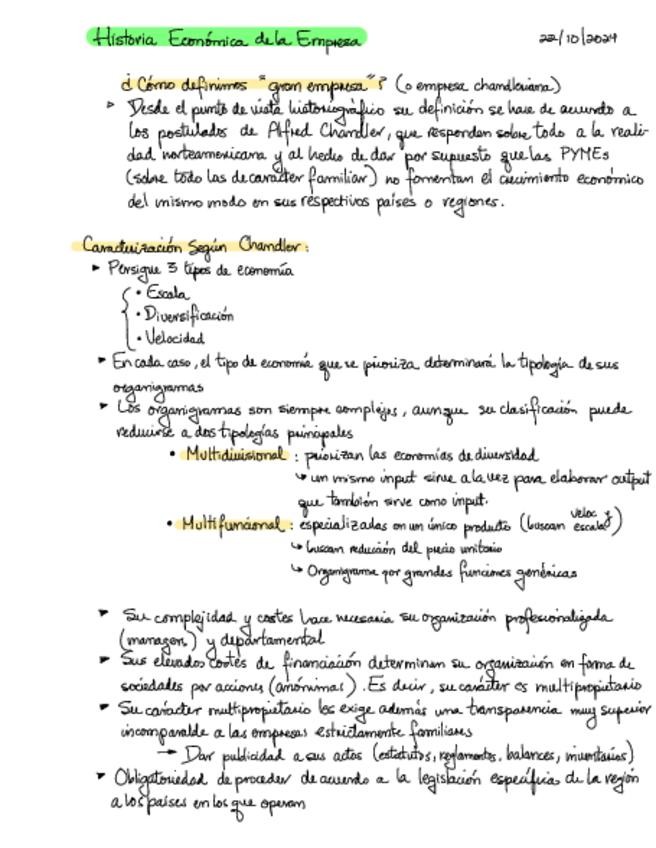 Historia Económica de la Empresa
22/10/2024
¿Cómo definimos "gran empresa"? (o empresa chandleriana)
▸ Desde el punto de vista historiográfico su definición se hace de acuerdo a
los postulados de Alfred Chandler, que responden sobre todo a la reali-
dad norteamericana y al hecho de dar por supuesto que las PYMEs
(sobre todo las de carácter familiar) no fomentan el crecimiento económico
del mismo modo en sus respectivos países o regiones.
Caracterización Según Chandler:
▸ Persigue 3 tipos de economía
• Escala
• Diversificación
• Velocidad
▸ En cada caso, el tipo de economía que se prioriza determinará la tipología de sus
organigramas
▸ Los organigramas son siempre complejos, aunque su clasificación puede
reducirse a dos tipologías principales
• Multidivisional: priorizan las economías de diversidad
↳ un mismo input sirve a la vez para elaborar output
que también sirve como input.
• Multifuncional: especializadas en un único producto (buscan veloc y escala)
↳ buscan reducción del precio unitario
↳ Organigrama por grandes funciones genéricas
▸ Su complejidad y costes hace necesaria su organización profesionalizada
(managers) y departamental
▸ Sus elevados costes de financiación determinan su organización en forma de
sociedades por acciones (anónimas). Es decir, su carácter es multipropietario
▸ Su carácter multipropietario les exige además una transparencia muy superior
incomparable a las empresas estrictamente familiares
→ Dar publicidad a sus actos (estatutos, reglamentos, balances, inventarios)
▸ Obligatoriedad de proceder de acuerdo a la legislación específica de la región
a los países en los que operan